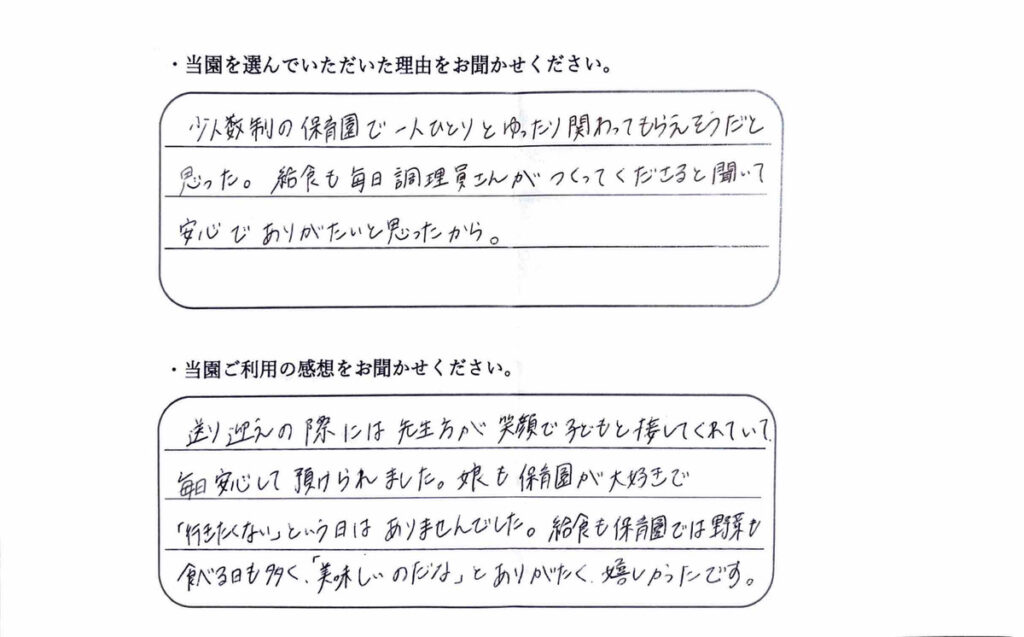 ・当園を選んでいただいた理由をお聞かせください。
少人数制の保育園で一人ひとりとゆったり関わってもらえそうだと
思った。給食も毎日調理員さんがつくってくださると聞いて
安心でありがたいと思ったから。
・当園ご利用の感想をお聞かせください。
送り迎えの際には先生方が笑顔で子どもと接してくれていて、
毎日安心して預けられました。娘も保育園が大好きで
「行きたくない」という日はありませんでした。給食も保育園では野菜も
食べる日も多く、「美味しいのだな」とありがたく、嬉しかったです。